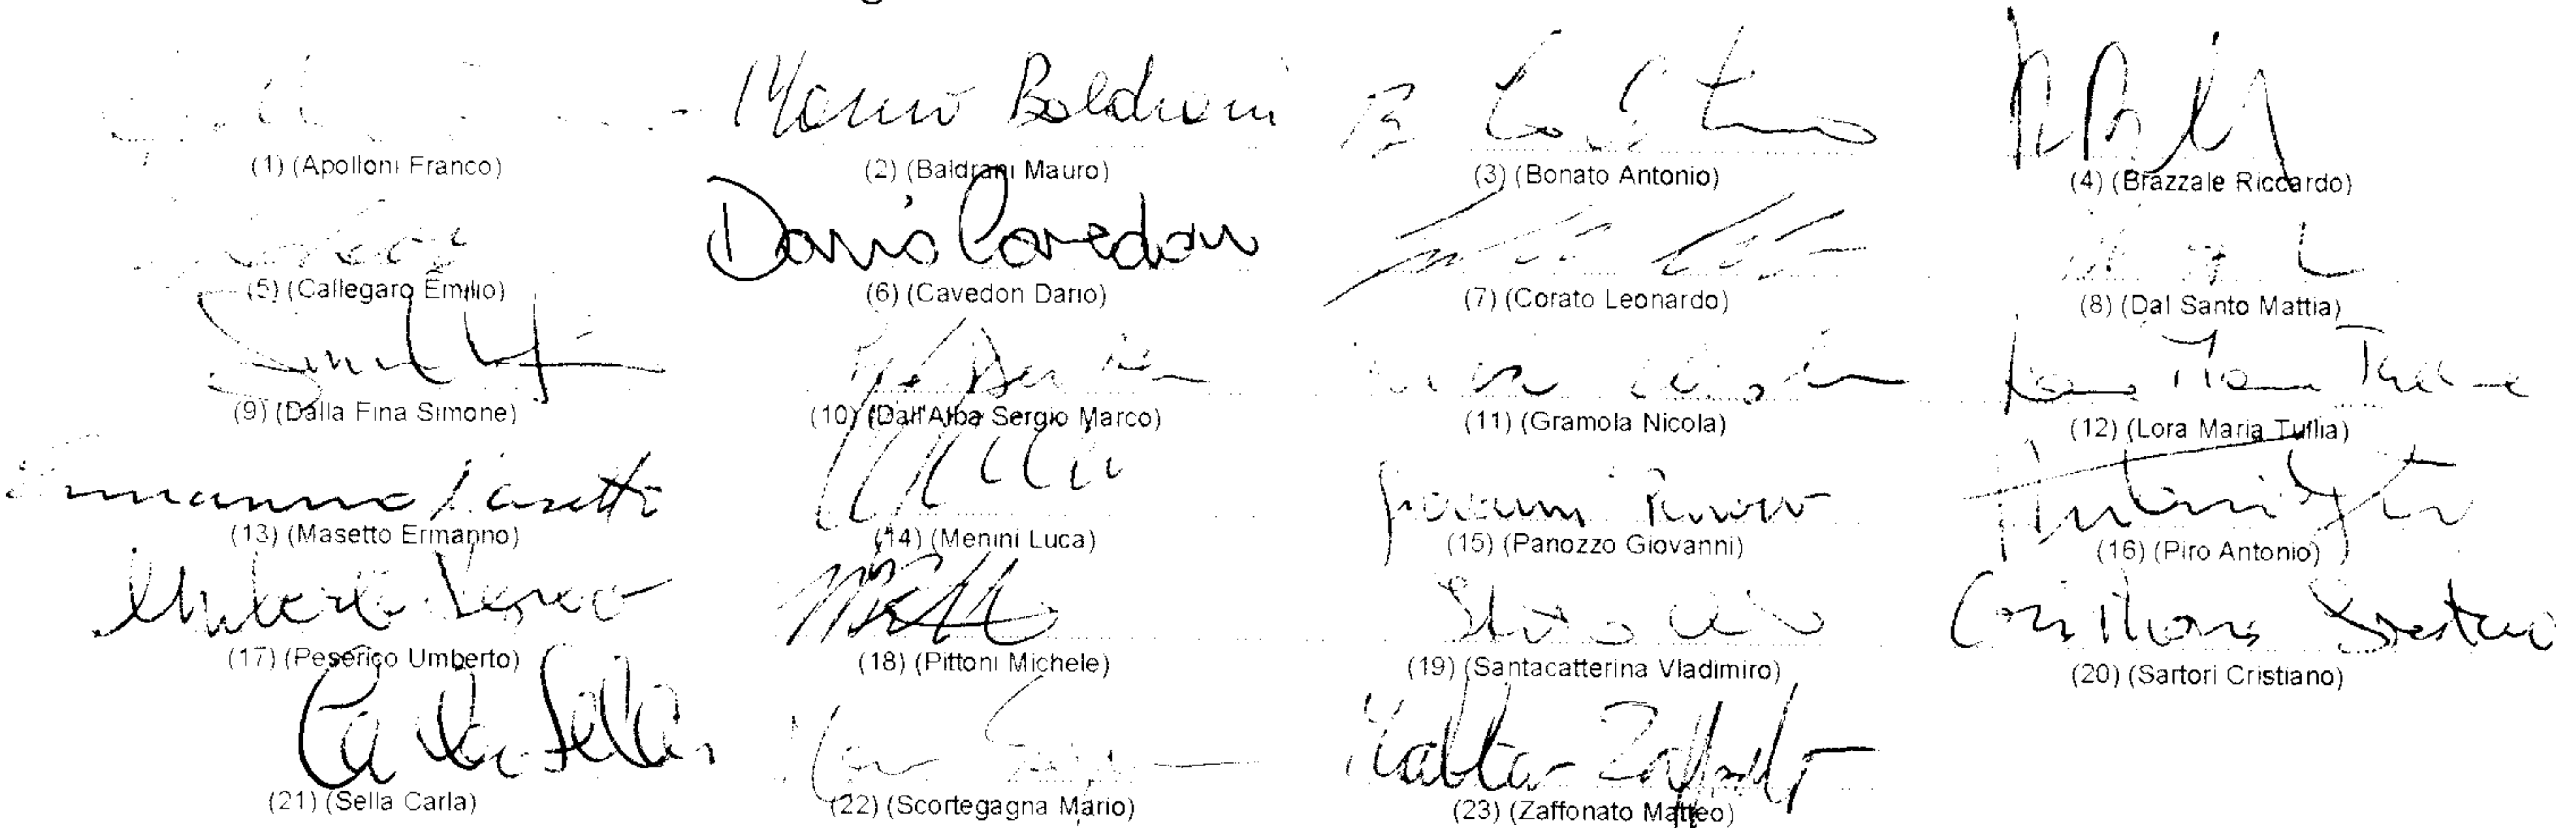 Mauro Baldrani
(1) (Apolloni Franco) (2) (Baldrani Mauro) (3) (Bonato Antonio) (4) (Brazzale Riccardo)
Dario Cavedon
(5) (Callegaro Emilio) (6) (Cavedon Dario) (7) (Corato Leonardo) (8) (Dal Santo Mattia)
(9) (Dalla Fina Simone) (10) (Dall'Alba Sergio Marco) (11) (Gramola Nicola) (12) (Lora Maria Tullia)
Ermanno Masetto
(13) (Masetto Ermanno) (14) (Menini Luca) (15) (Panozzo Giovanni) (16) (Piro Antonio)
Umberto Peserico Cristiano Sartori
(17) (Peserico Umberto) (18) (Pittoni Michele) (19) (Santacatterina Vladimiro) (20) (Sartori Cristiano)
Carla Sella Matteo Zaffonato
(21) (Sella Carla) (22) (Scortegagna Mario) (23) (Zaffonato Matteo)